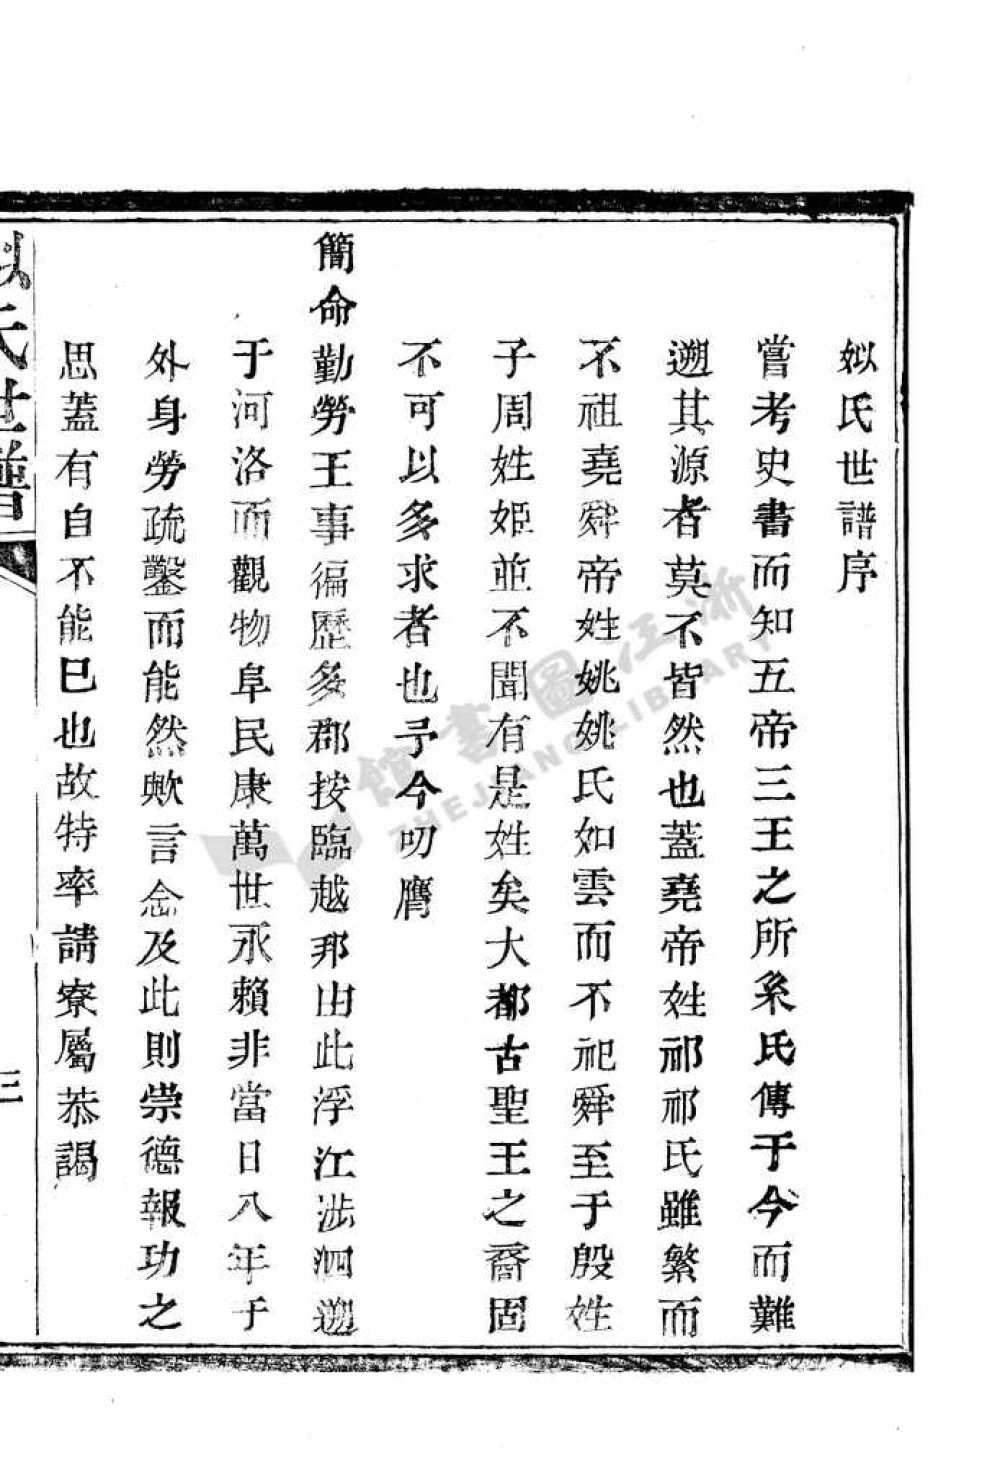 姒氏世譜序
嘗考史書而知五帝三王之所系氏傳于今而難
遡其源者莫不皆然也蓋堯帝姓祁祁氏雖繁而
不祖堯舜帝姓姚姚氏如雲而不祀舜至于殷姓
子周姓姬並不聞有是姓矣大都古聖王之裔固
不可以多求者也予今叨膺
簡命勤勞王事徧歷多郡按臨越邦由此浮江涉泗遡
于河洛而觀物阜民康萬世永賴非當日八年于
外身勞疏鑿而能然歟言念及此則崇德報功之
思蓋有自不能已也故特率請寮屬恭謁
姒氏世譜
三
浙江圖書館
ZHEJIANG LIBRARY